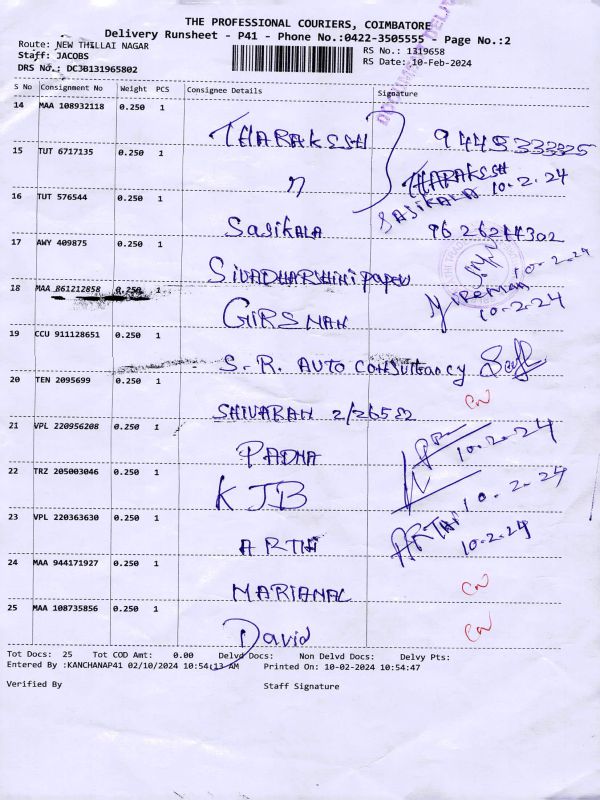 THE PROFESSIONAL COURIERS, COIMBATORE
Delivery Runsheet - P41 - Phone No.:0422-3505555 - Page No.:2
Route: NEW THILLAI NAGAR RS No.: 1319658
Staff: JACOBS RS Date: 10-Feb-2024
DRS No.: DC3B131965802
S No Consignment No Weight PCS Consignee Details Signature
14 MAA 108932118 0.250 1 THARAKESH 9445333325
15 TUT 6717135 0.250 1 " THARAKESH 10.2.24
16 TUT 576544 0.250 1 Sasikala SASIKALA 9626214302
17 AWY 409875 0.250 1 Sivadharshini paper 10.2.24
18 MAA 861212858 0.250 1 10.2.24
19 CCU 911128651 0.250 1 S.R. AUTO Consultancy
20 TEN 2095699 0.250 1 SHIVARAN 2/265
21 VPL 220956208 0.250 1 PADMA 10.2.24
22 TRZ 205003046 0.250 1 KJB 10.2.24
23 VPL 220363630 0.250 1 ARTHI 10.2.24
24 MAA 944171927 0.250 1 MARIANAL
25 MAA 108735856 0.250 1 David
Tot Docs: 25 Tot COD Amt: 0.00 Delvd Docs: Non Delvd Docs: Delvy Pts:
Entered By :KANCHANAP41 02/10/2024 10:54:13 AM Printed On: 10-02-2024 10:54:47
Verified By Staff Signature